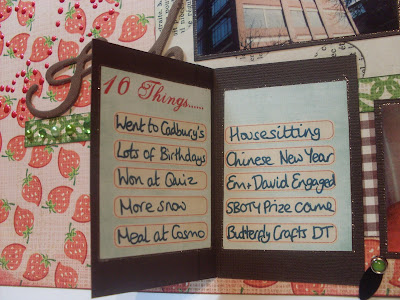 10 Things......
Went to Cadbury's
Lots of Birthdays
Won at Quiz
More snow
Meal at Cosmo
Housesitting
Chinese New Year
Em + David Engaged
SBOTY Prize came
Butterfly Crafts DT